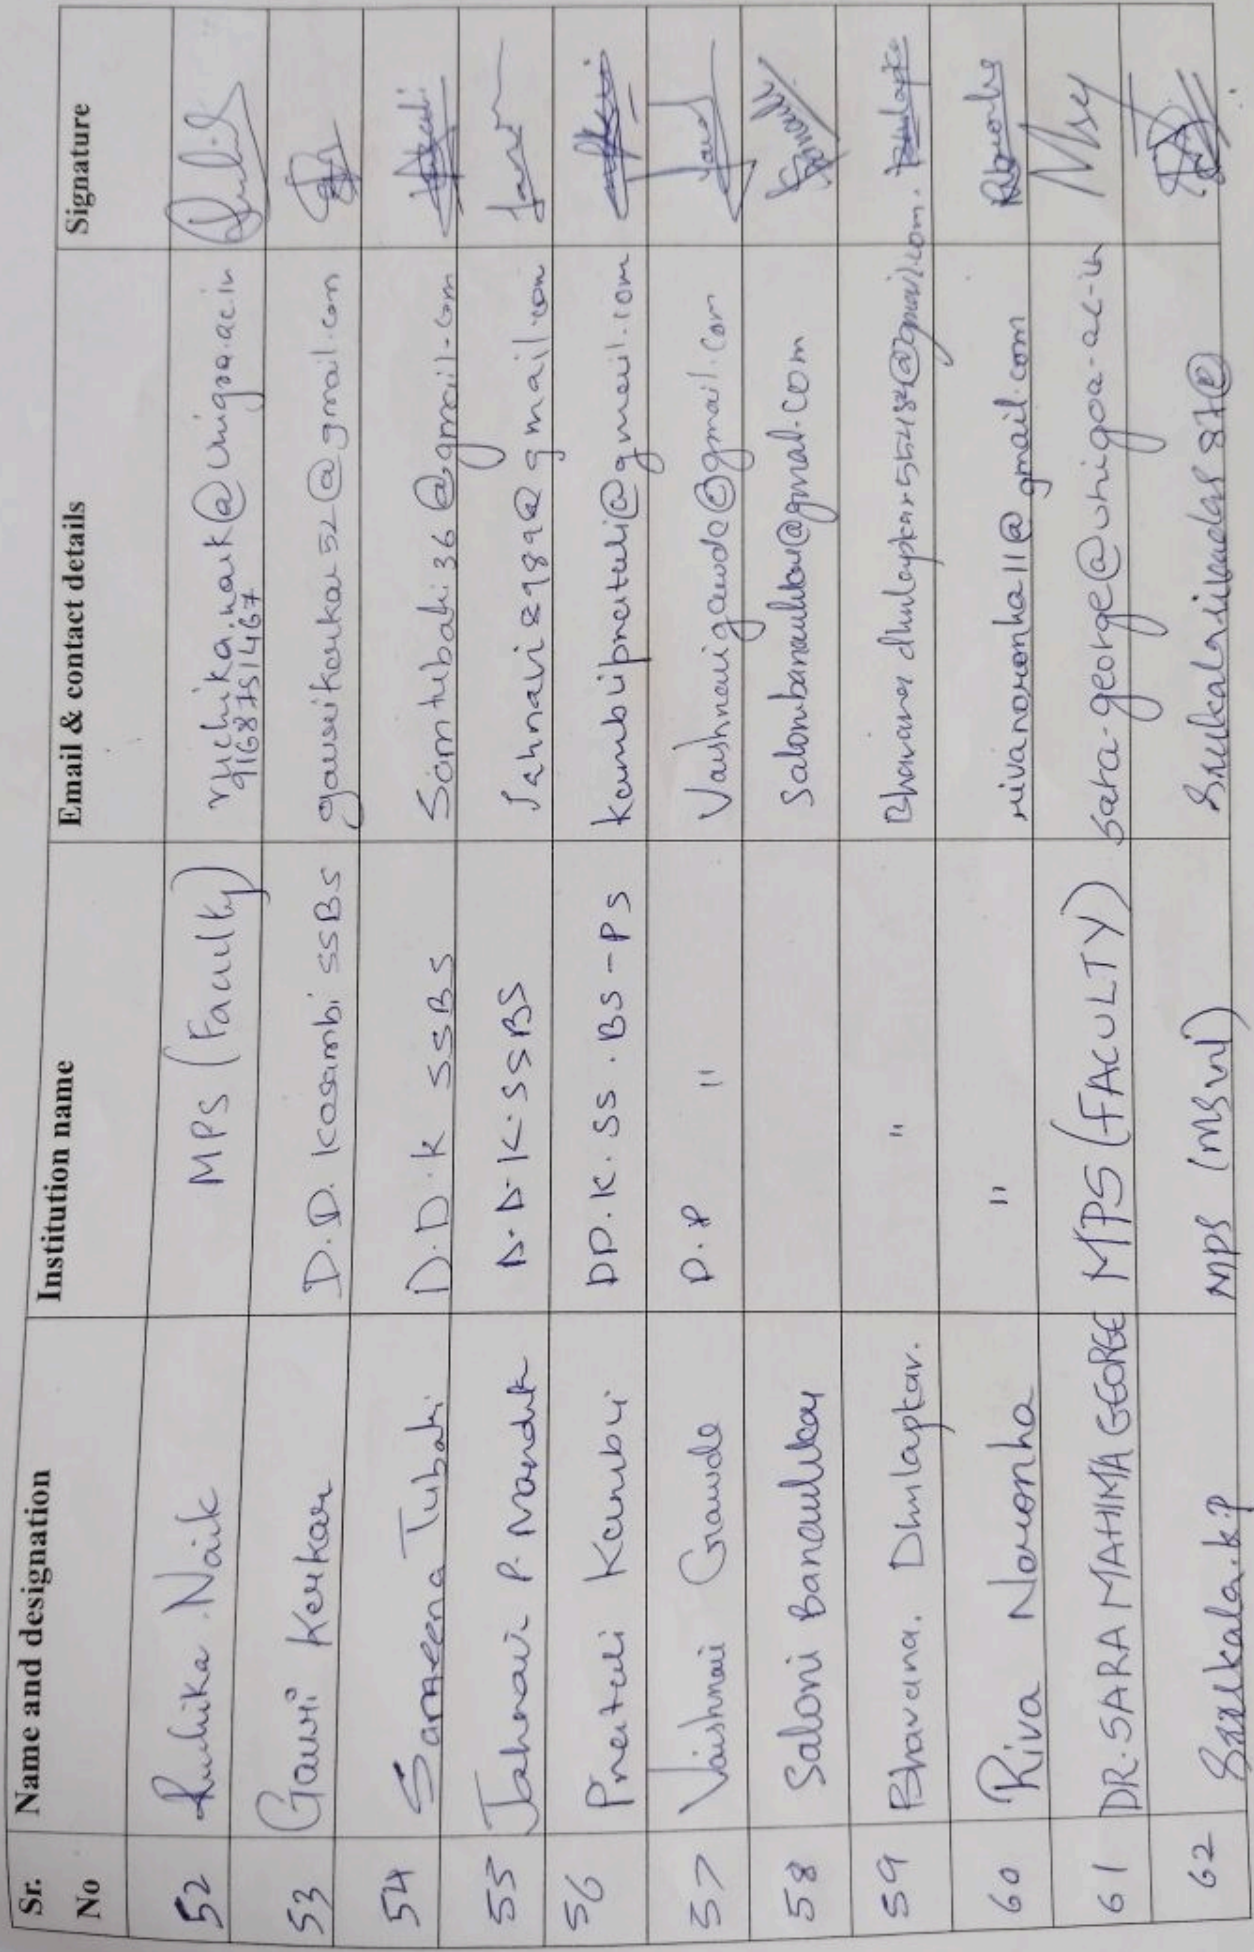 Sr. No Name and designation Institution name Email & contact details Signature
52 Ruchika Naik MPS (Faculty) ruchika.naik@unigoa.ac.in
9168751467
53 Gauri Kerkar D.D. Kosambi SSBS gaurikerkar52@gmail.com
54 Sameena Tubaki D.D.K SSBS Samtubaki36@gmail.com
55 Jahnavi P. Mandrek D.D.K.SSBS Jahnavi2989@gmail.com
56 Pratali DD.K.SS.BS-PS @gmail.com
57 Vaishnavi Gawde D.P " Vaishnavigawde@gmail.com
58 Saloni Banaulikar @gmal.com
59 Bhavana. Dhulapkar. " @gmail.com.
60 Riva Noronha " rivanoronha11@gmail.com
61 DR. SARA MAHIMA GEORGE MPS (FACULTY) sara-george@unigoa-ac-in
62 MPS